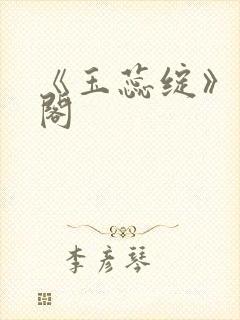 《玉蕊绽》
阁
李彦琴